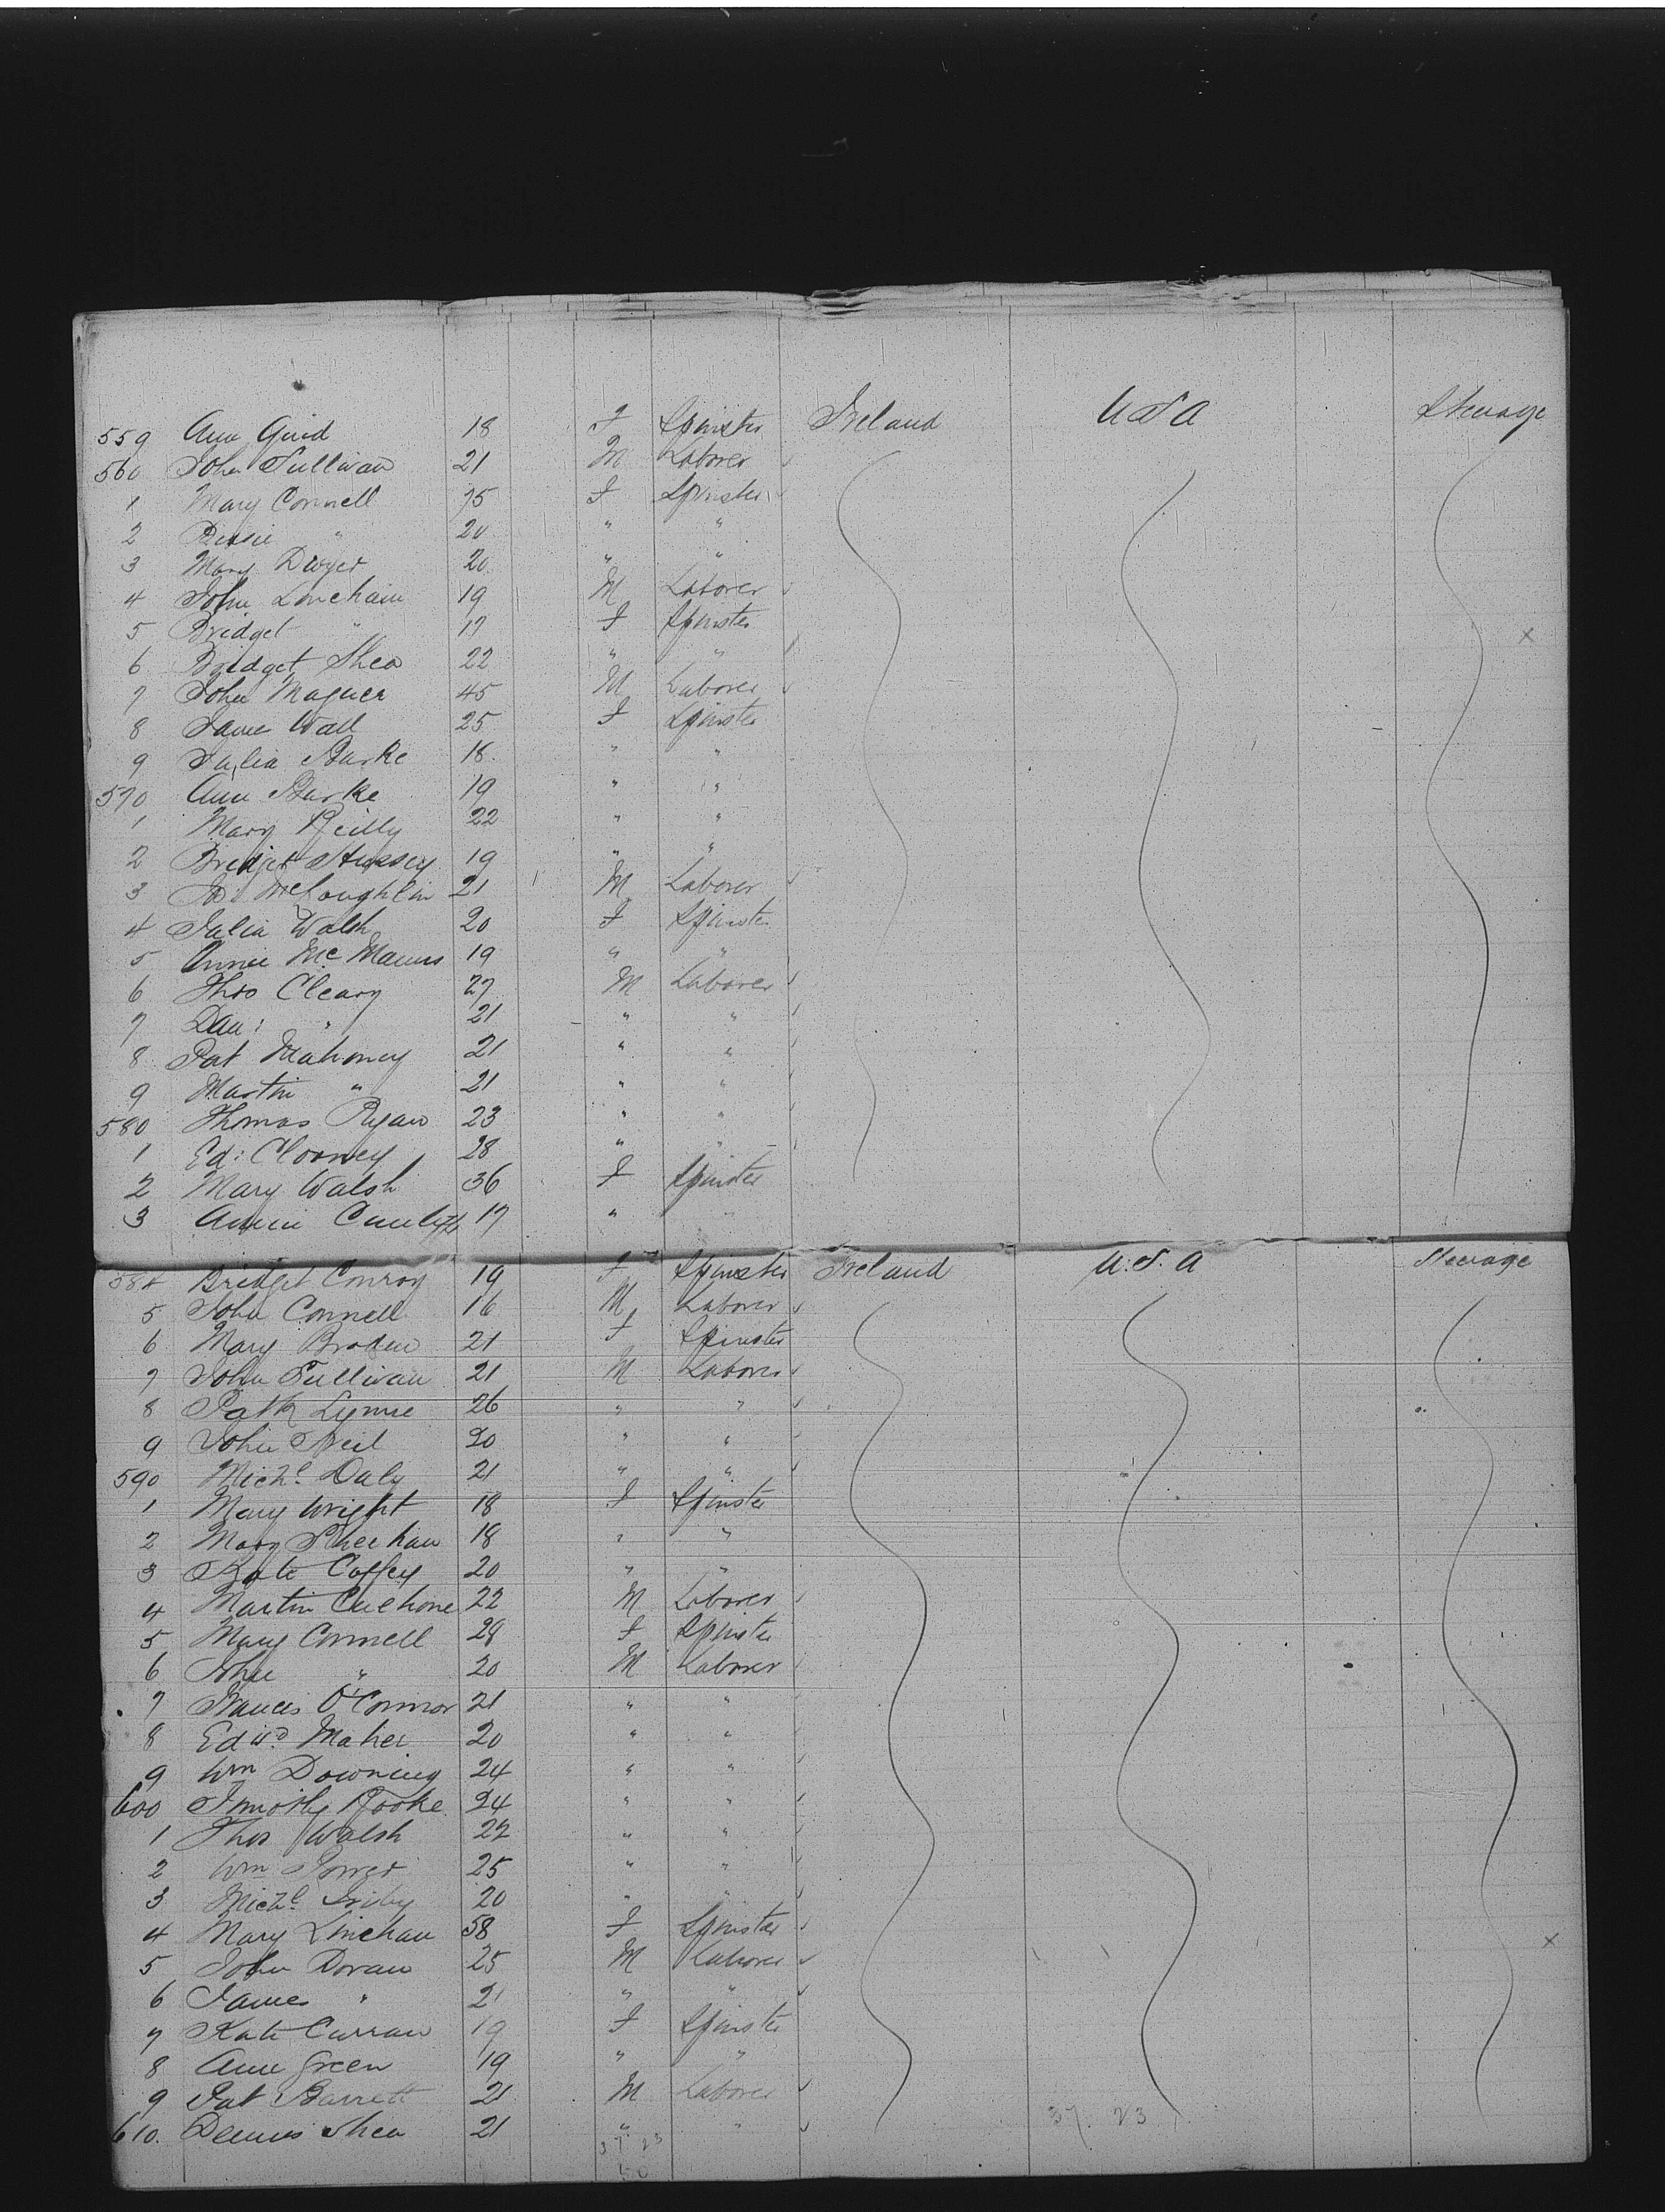 559 Ann 18 F Spinster Ireland U S A Steerage
560 John Sullivan 21 M Laborer
1 Mary Connell 75 F Spinster
2 Bessie " 20 " "
3 Mary Dwyer 20 " "
4 John Linehain 19 M Laborer
5 Bridget " 17 F Spinster
6 Bridget Shea 22 " "
7 John Maguer 45 M Laborer
8 Jane Wall 25 F Spinster
9 Julia Burke 18 " "
570 Ann Burke 19 " "
1 Mary Reilly 22 " "
2 Bridget Hussey 19 " "
3 McLoughlin 21 M Laborer
4 Julia Walsh 20 F Spinster
5 Annie McManus 19 " "
6 Thos Cleary 27 M Laborer
7 Dan: " 21 " "
8 Pat Mahoney 21 " "
9 Martin " 21 " "
580 Thomas Ryan 23 " "
1 Ed: Clooney 28 " "
2 Mary Walsh 36 F Spinster
3 Annie 17 "
584 Bridget Conroy 19 F Spinster Ireland U.S.A Steerage
5 John Connell 16 M Laborer
6 Mary 21 F Spinster
7 John Sullivan 21 M Laborer
8 Patk Lynne 26 " "
9 John Neil 20 " "
590 Michl Daly 21 " "
1 Mary Wright 18 F Spinster
2 Mary Sheehan 18 " "
3 Kate Coffey 20 " "
4 Martin 22 M Laborer
5 Mary Connell 28 F Spinster
6 John " 20 M Laborer
7 Francis O'Connor 21 " "
8 Edwd Maher 20 " "
9 Wm Downing 24 " "
600 Timothy Rooke 24 " "
1 Thos Walsh 22 " "
2 Wm Power 25 " "
3 Michl 20 " "
4 Mary Linehan 58 F Spinster
5 John Doran 25 M Laborer
6 James " 21 " "
7 Kate Curran 19 F Spinster
8 Ann Green 19 " "
9 Pat Barrett 21 M Laborer
610. Dennis Shea 21 " "
37 23 37. 23
50